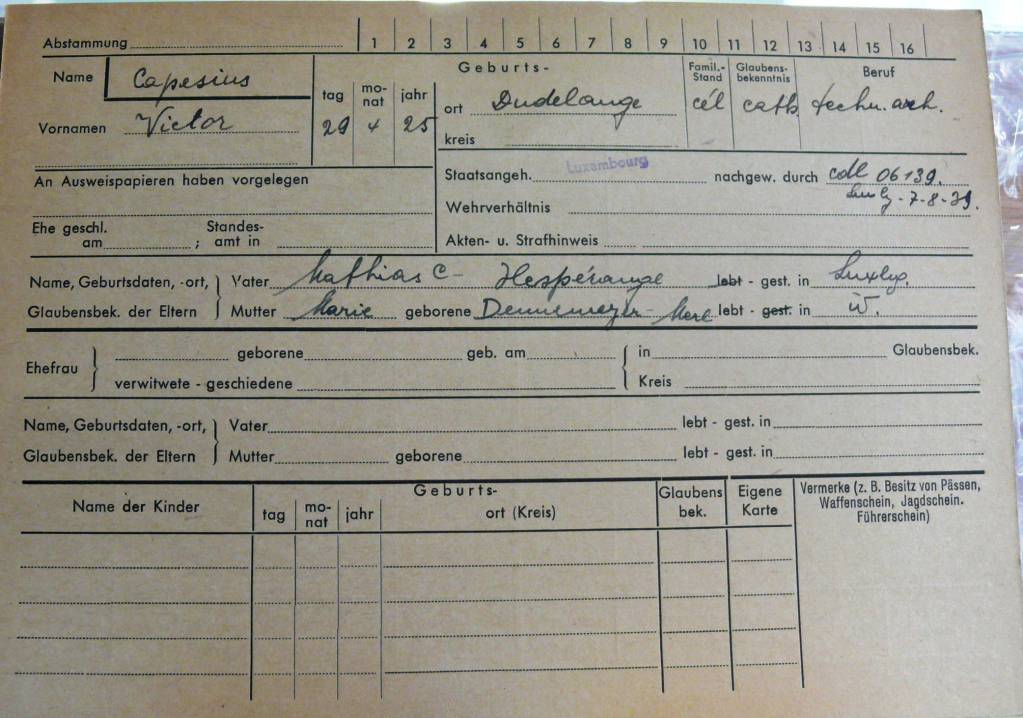 Abstammung 1 2 3 4 5 6 7 8 9 10 11 12 13 14 15 16
Name Capesius
Vornamen Victor
Geburts-
tag monat jahr
29 4 25
ort Dudelange
kreis
Famil.-Stand cél
Glaubensbekenntnis cath.
Beruf techn. arch.
An Ausweispapieren haben vorgelegen
Staatsangeh. Luxembourg nachgew. durch cdl 06139.
Luxbg - 7-8-39.
Wehrverhältnis
Ehe geschl. am ; Standesamt in
Akten- u. Strafhinweis
Name, Geburtsdaten, -ort, Vater Mathias C - Hespérange lebt - gest. in Luxbg.
Glaubensbek. der Eltern Mutter Marie geborene Dennemeyer - Merl lebt - gest. in
Ehefrau geborene geb. am in Glaubensbek.
verwitwete - geschiedene Kreis
Name, Geburtsdaten, -ort, Vater lebt - gest. in
Glaubensbek. der Eltern Mutter geborene lebt - gest. in
Name der Kinder
Geburts-
tag monat jahr ort (Kreis)
Glaubens bek.
Eigene Karte
Vermerke (z. B. Besitz von Pässen,
Waffenschein, Jagdschein.
Führerschein)